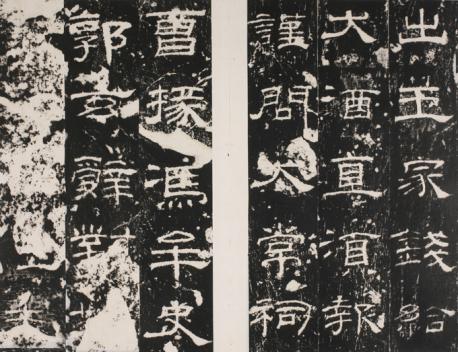 出王家錢給
大酒直須報
謹問大常祠
曹掾馮牟史
郭玄辭對